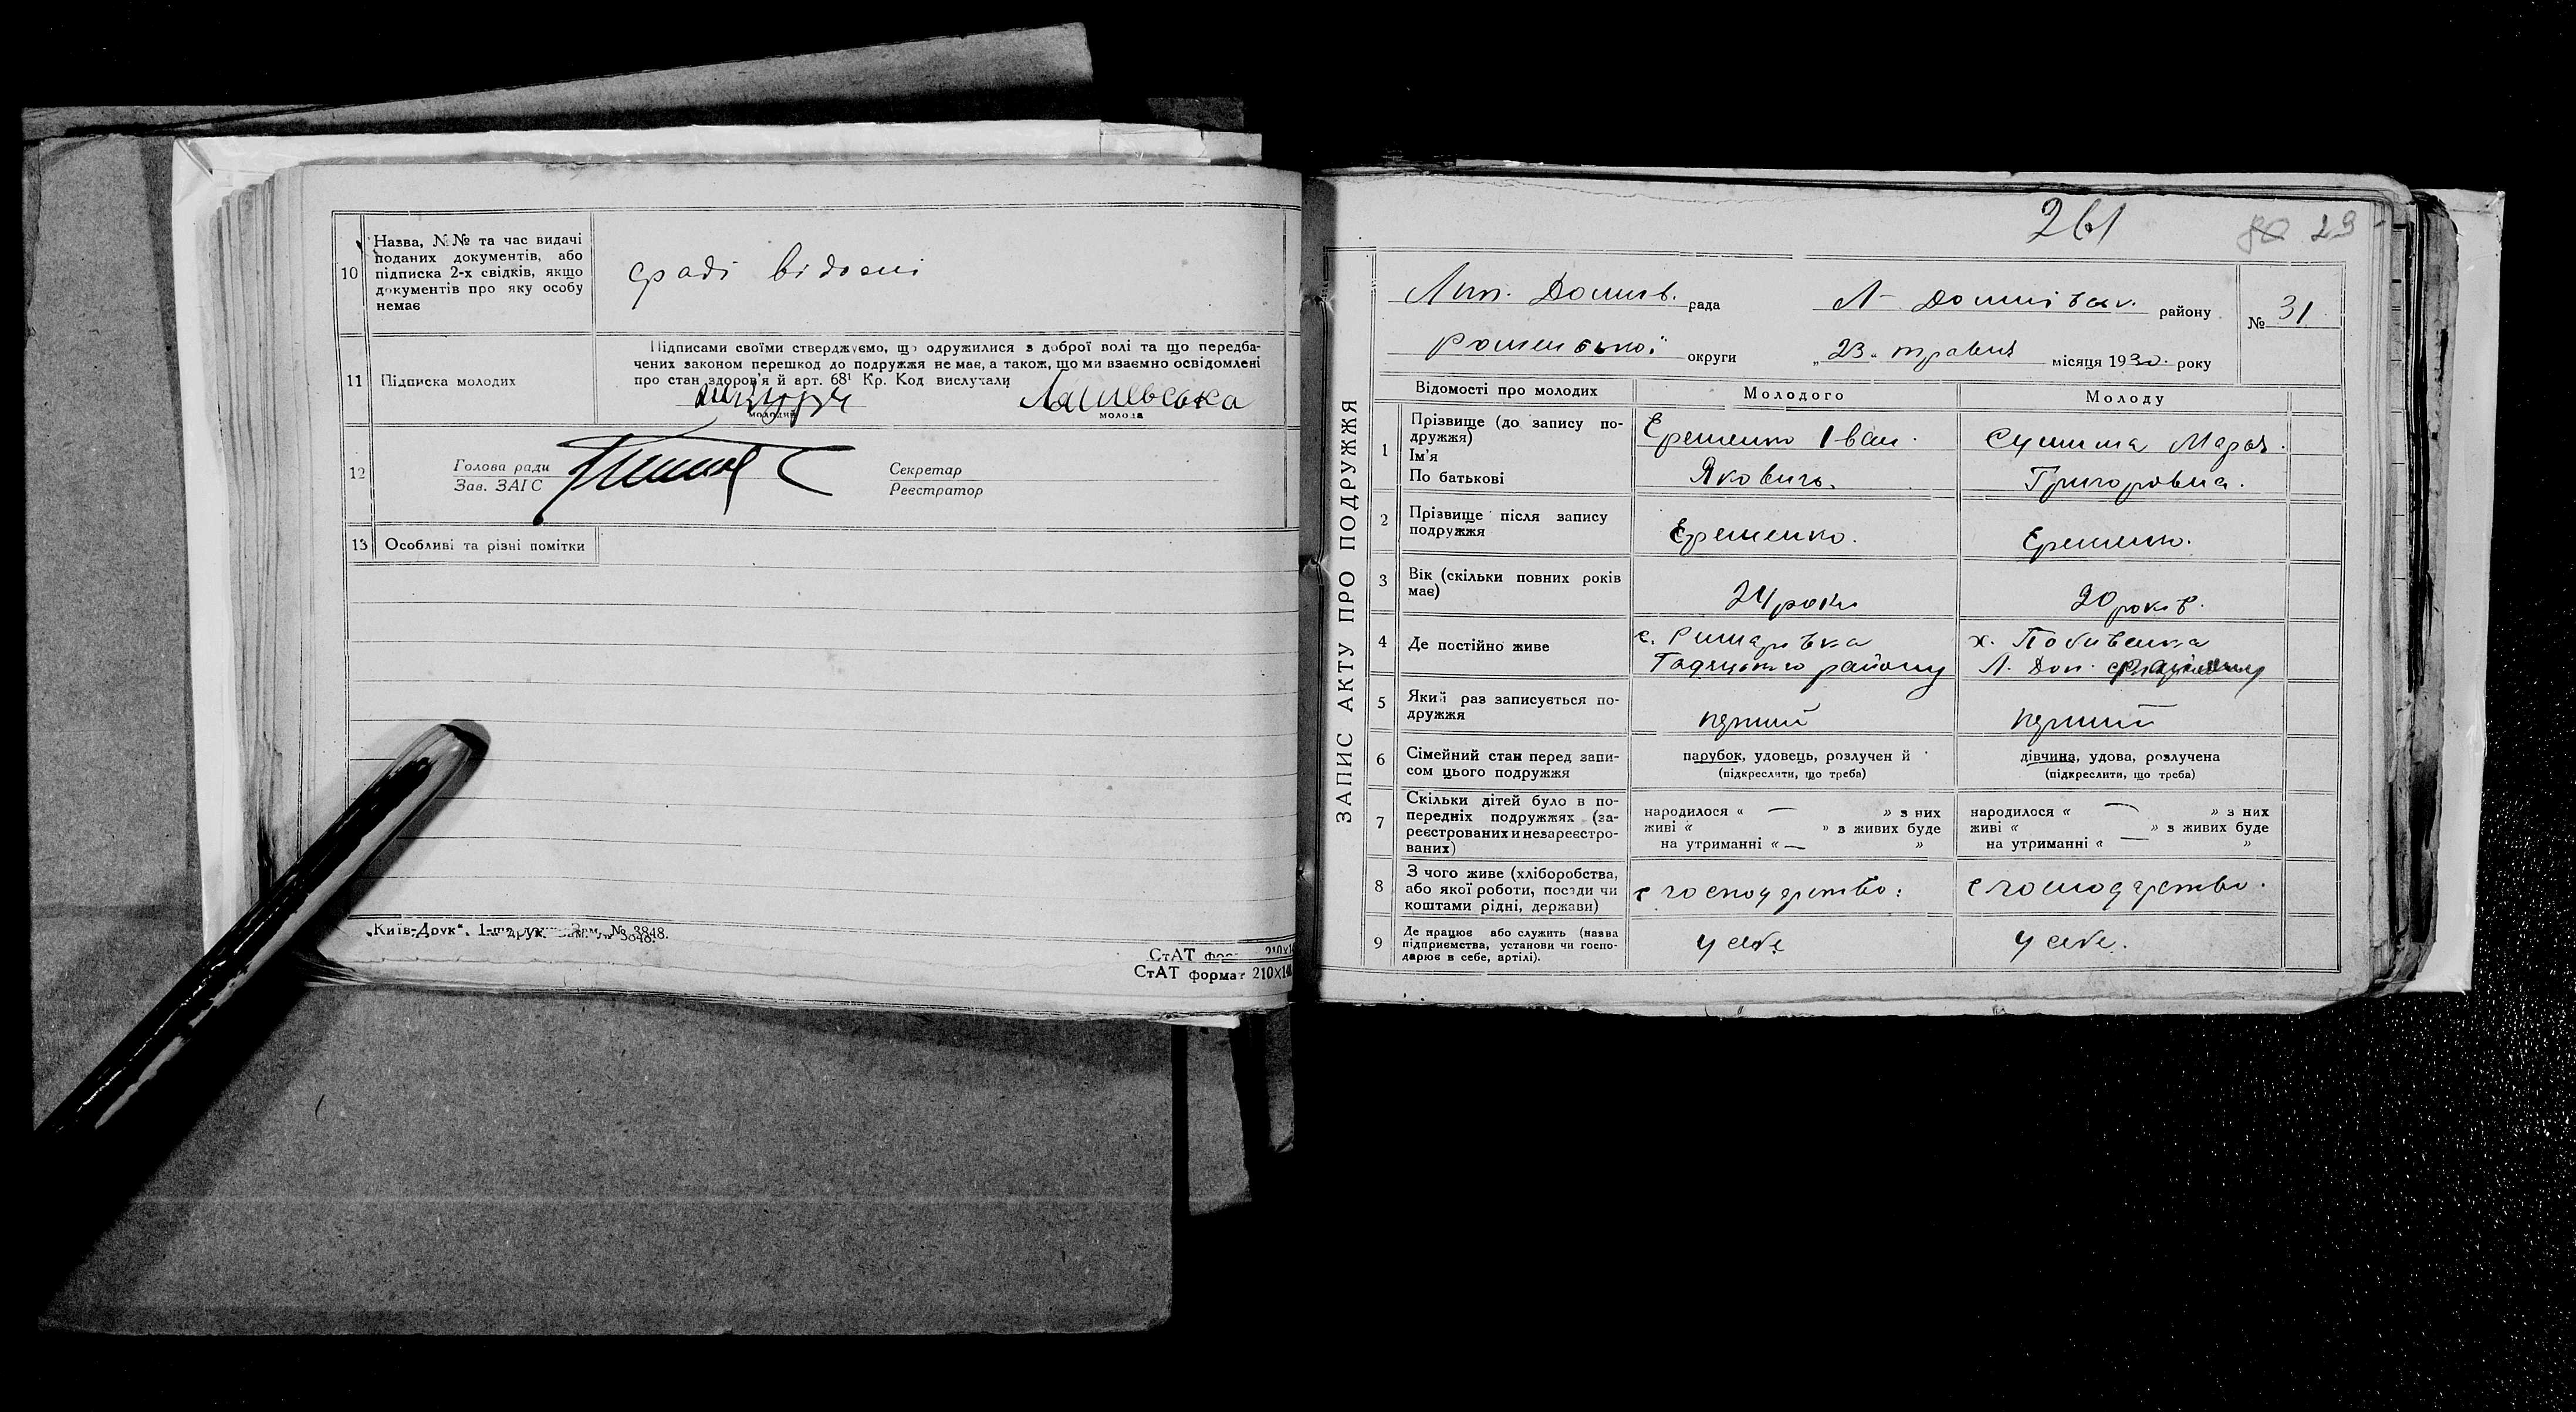 10 Назва, №№ та час видачі
поданих документів, або
підписка 2-х свідків, якщо
документів про яку особу
немає
раді відомі
11 Підписка молодих
Підписами своїми стверджуємо, що одружилися з доброї волі та що передба-
чених законом перешкод до подружжя немає, а також, що ми взаємно освідомлені
про стан здоров'я й арт. 68¹ Кр. Код вислухали
молодий
молода
12 Голова ради
Зав. ЗАГС
Секретар
Реєстратор
13 Особливі та різні помітки
„Київ-Друк“, 1-ша друк. Зам. № 3848.
СтАТ формат 210×148
261
29
ЗАПИС АКТУ ПРО ПОДРУЖЖЯ
Лип. Долин. рада Л- Долинівськ. району № 31
Роменської округи „23“ травня місяця 1930 року
Відомості про молодих Молодого Молоду
1 Прізвище (до запису по-
дружжя)
Ім'я
По батькові
Єременко Іван
Яковичь.
Марья
Григоровна.
2 Прізвище після запису
подружжя
Єременко.
Єременко.
3 Вік (скільки повних років
має)
24 роки
20 років.
4 Де постійно живе
с. Римарівка
Гадяцького району
х. Побиванка
Л. Дол. району
5 Який раз записується по-
дружжя
перший
перший
6 Сімейний стан перед запи-
сом цього подружжя
парубок, удовець, розлучен й
(підкреслити, що треба)
дівчина, удова, розлучена
(підкреслити, що треба)
7 Скільки дітей було в по-
передніх подружжях (за-
реєстрованих и незареєстро-
ваних)
народилося « — » з них
живі « » з живих буде
на утриманні « — »
народилося « — » з них
живі « » з живих буде
на утриманні « — »
8 З чого живе (хліборобства,
або якої роботи, посади чи
коштами рідні, держави)
с господарство.
с господарство.
9 Де працює або служить (назва
підприємства, установи чи госпо-
дарює в себе, артілі).
у себе
у себе.